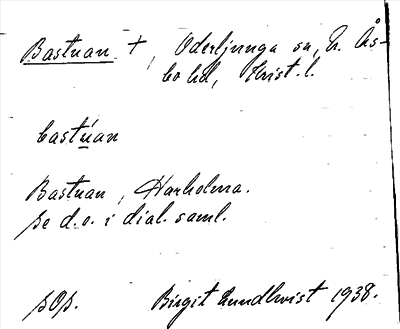 Bastuan +, Oderljunga sn, N. Ås-
bo hd, Krist. l.
bastúan
Bastuan, Harholma.
se d.o. i dial. saml.
sop. Birgit Lundkvist 1938.